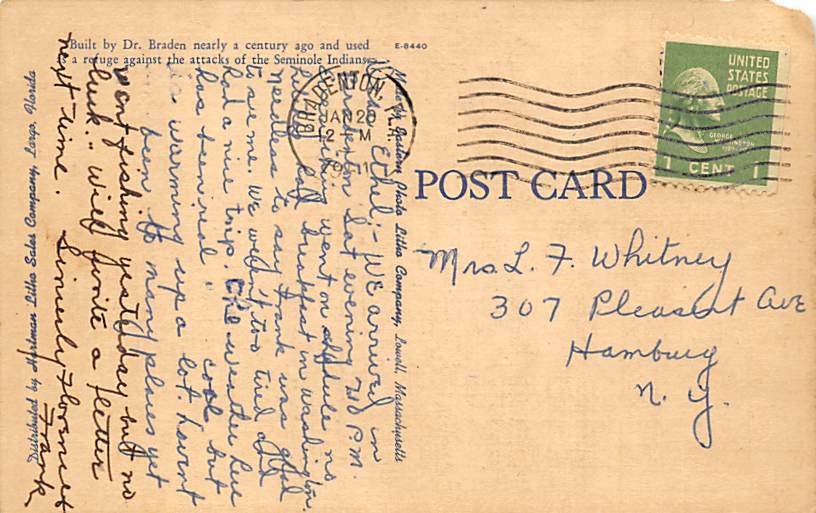 Built by Dr. Braden nearly a century ago and used
as a refuge against the attacks of the Seminole Indians.
E-8440
BRADENTON, FLA.
JAN 20
12 M
UNITED
STATES
POSTAGE
GEORGE
WASHINGTON
1 CENT 1
POST CARD
Mrs. L. F. Whitney
307 Pleasant Ave
Hamburg
N. Y.
Made by Litho Company, Lowell, Massachusetts
Distributed by Hartman Litho Sales Company, Largo, Florida
Ethel:- We arrived in
Sat evening 7:20 P.M.
went on schedule no
had breakfast in Washington.
Needless to say Frank was glad
to see me. We weren't too tired and
had a nice trip. The weather here
has been real cool but
is warming up a lot. havnt
been to many places yet
went fishing yesterday but no
luck. Will write a letter
next time. Sincerely Florence &
Frank